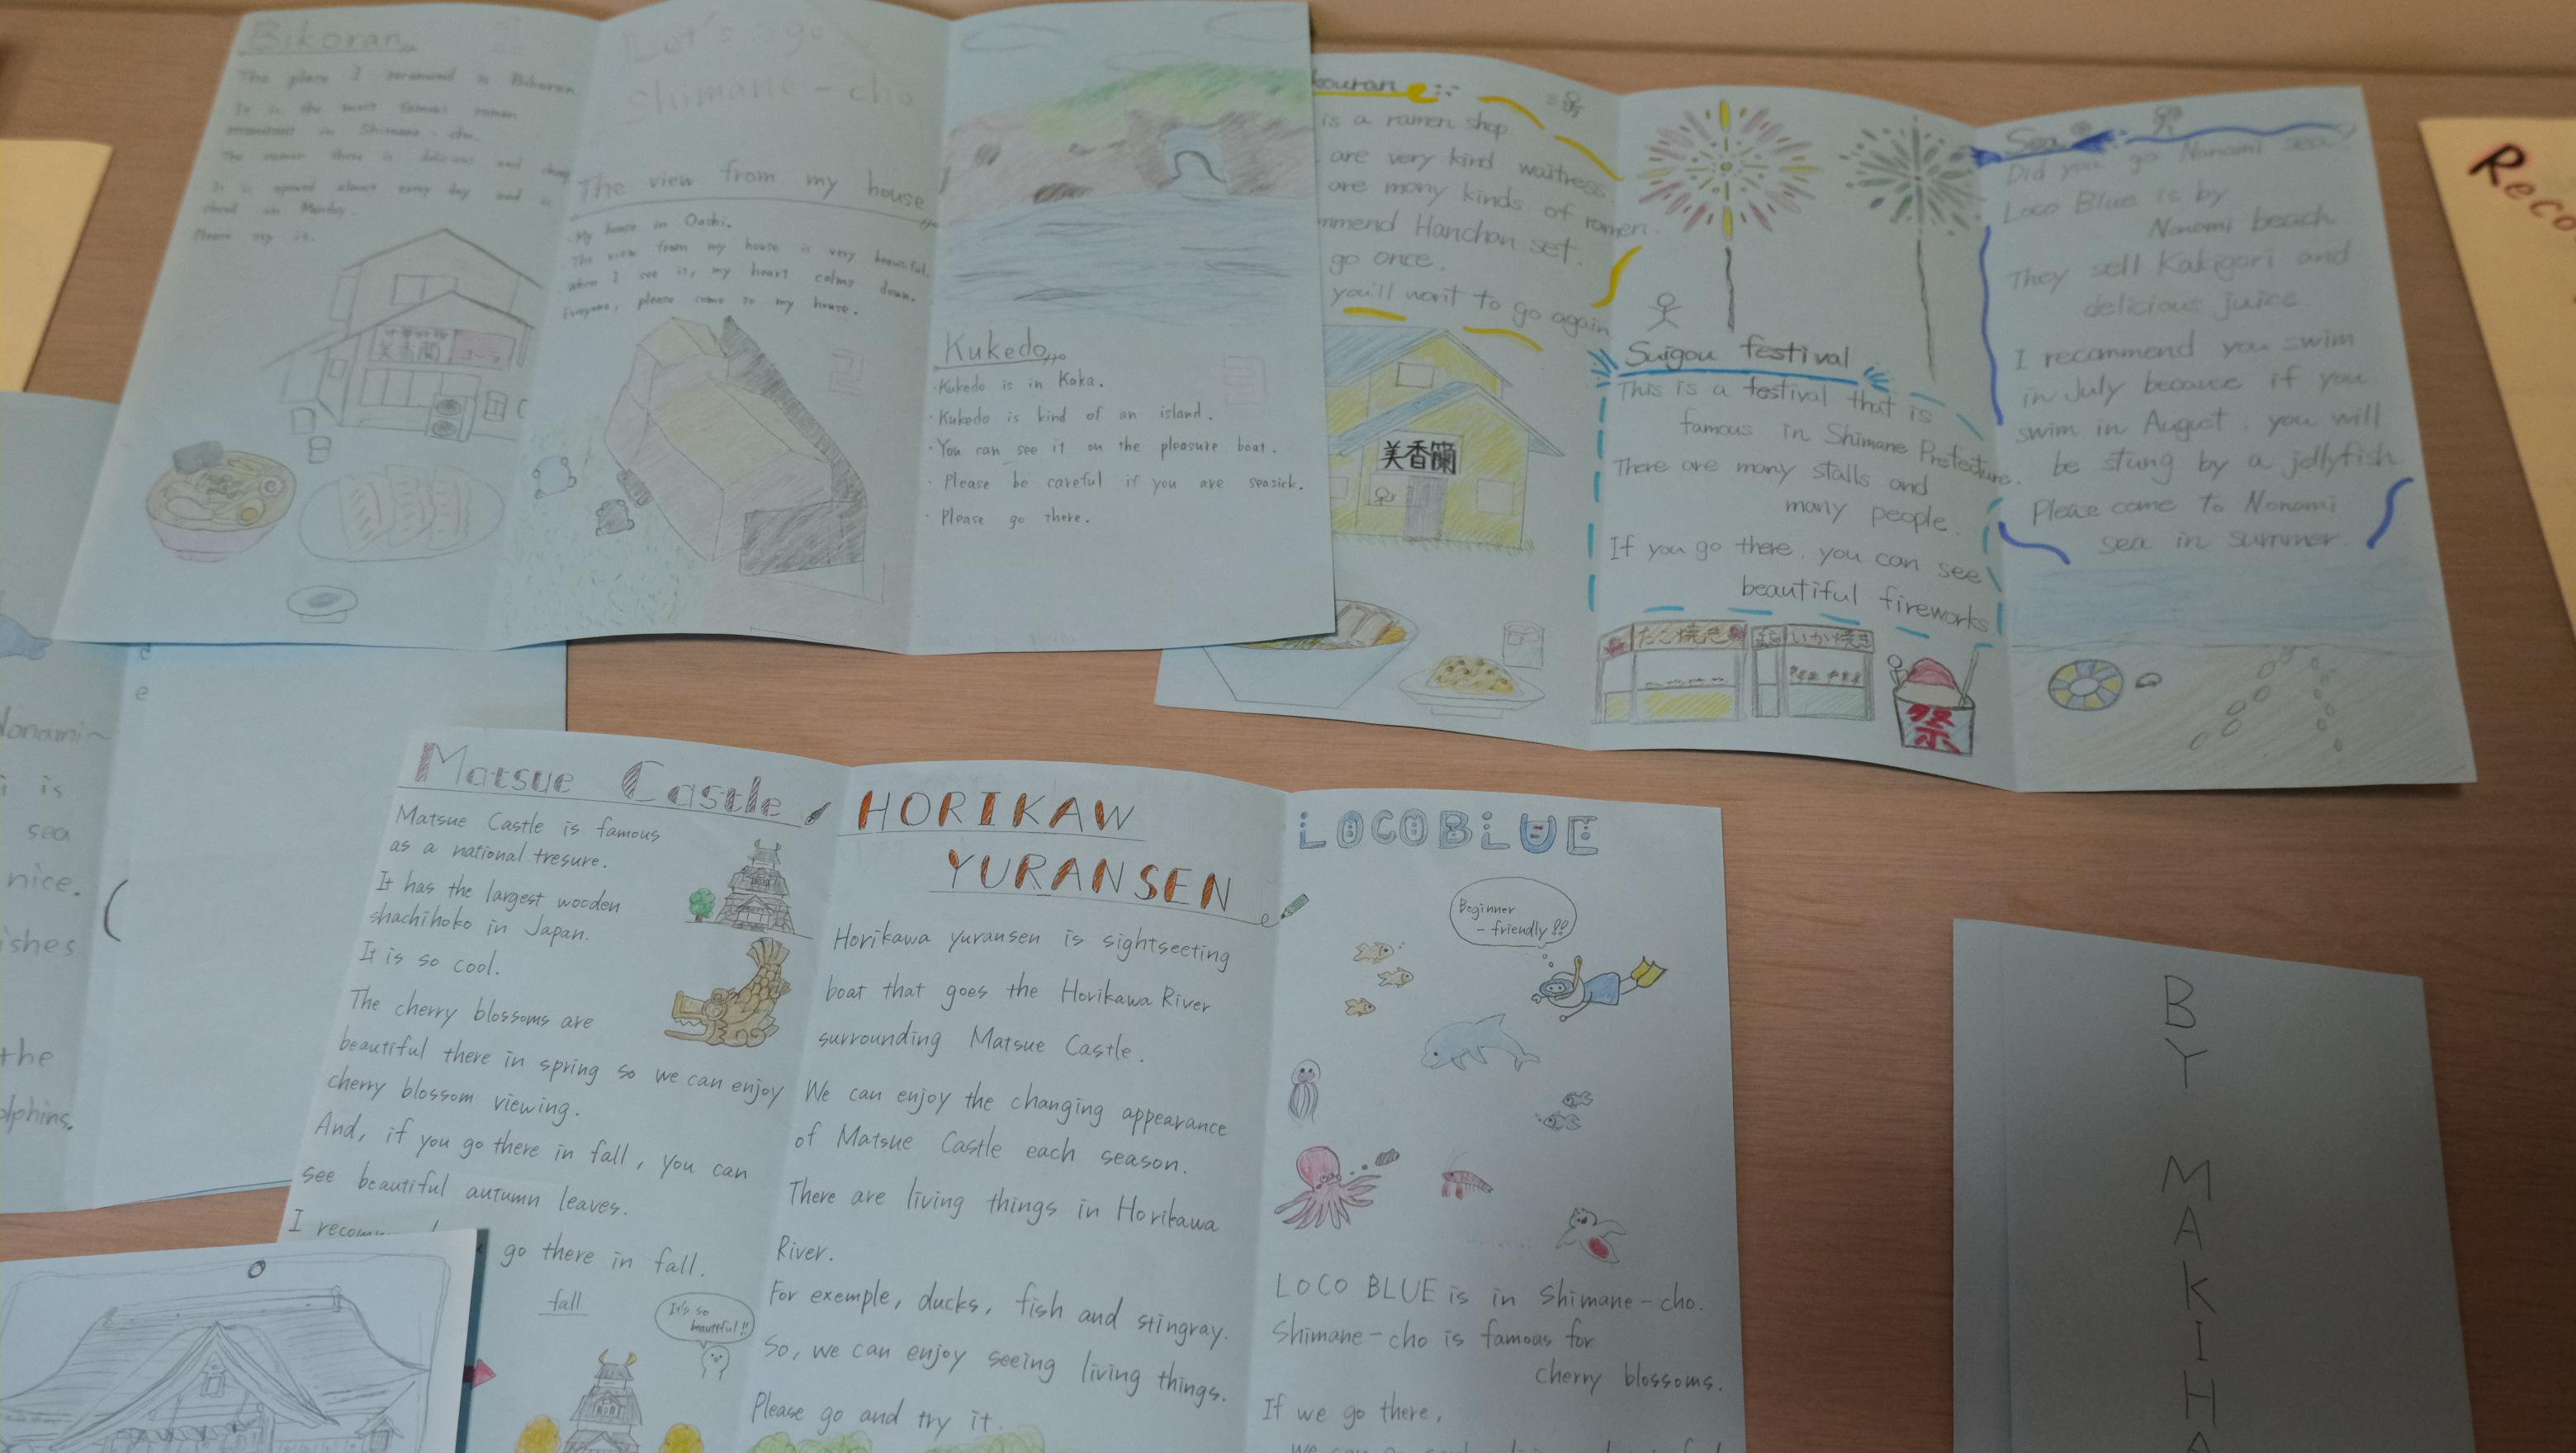 Bikoran
The place I recomend is Bikoran
It is the most famous ramen
restaurant in Shimane-cho.
The ramen there is delicious and cheap
It is opened almost every day and is
closed on Monday.
Please try it.
美香蘭
Let's go
Shimane-cho
The view from my house
My house in Oashi.
The view from my house is very beautiful.
When I see it, my heart calms down.
Everyone, please come to my house.
Kukedo
・Kukedo is in Kaka.
・Kukedo is kind of an island.
・You can see it on the pleasure boat.
・Please be careful if you are seasick.
・Please go there.
kouran
is a ramen shop
are very kind waitress
are many kinds of ramen.
mmend Hanchan set.
go once.
you'll want to go again
美香蘭
Suigou festival
This is a festival that is
famous in Shimane Prefecture.
There are many stalls and
many people.
If you go there, you can see
beautiful fireworks
たこ焼き
いか焼き
祭
Sea
Did you go Nonami sea
Loco Blue is by
Nonami beach
They sell Kakigori and
delicious juice
I recommend you swim
in July because if you
swim in August, you will
be stung by a jellyfish
Please come to Nonami
sea in summer.
Reco
e
Nonami~
i is
sea
nice.
ishes
the
olphins.
(
Matsue Castle
Matsue Castle is famous
as a national tresure.
It has the largest wooden
shachihoko in Japan.
It is so cool.
The cherry blossoms are
beautiful there in spring so we can enjoy
cherry blossom viewing.
And, if you go there in fall, you can
see beautiful autumn leaves.
I recom
go there in fall.
fall
It's so
beautiful!!
HORIKAW
YURANSEN
Horikawa yuransen is sightseeting
boat that goes the Horikawa River
surrounding Matsue Castle.
We can enjoy the changing appearance
of Matsue Castle each season.
There are living things in Horikawa
River.
For exemple, ducks, fish and stingray.
So, we can enjoy seeing living things.
Please go and try it.
LOCOBLUE
Beginner
-friendly!!
LOCO BLUE is in Shimane-cho.
Shimane-cho is famous for
cherry blossoms.
If we go there,
BY MAKIHA